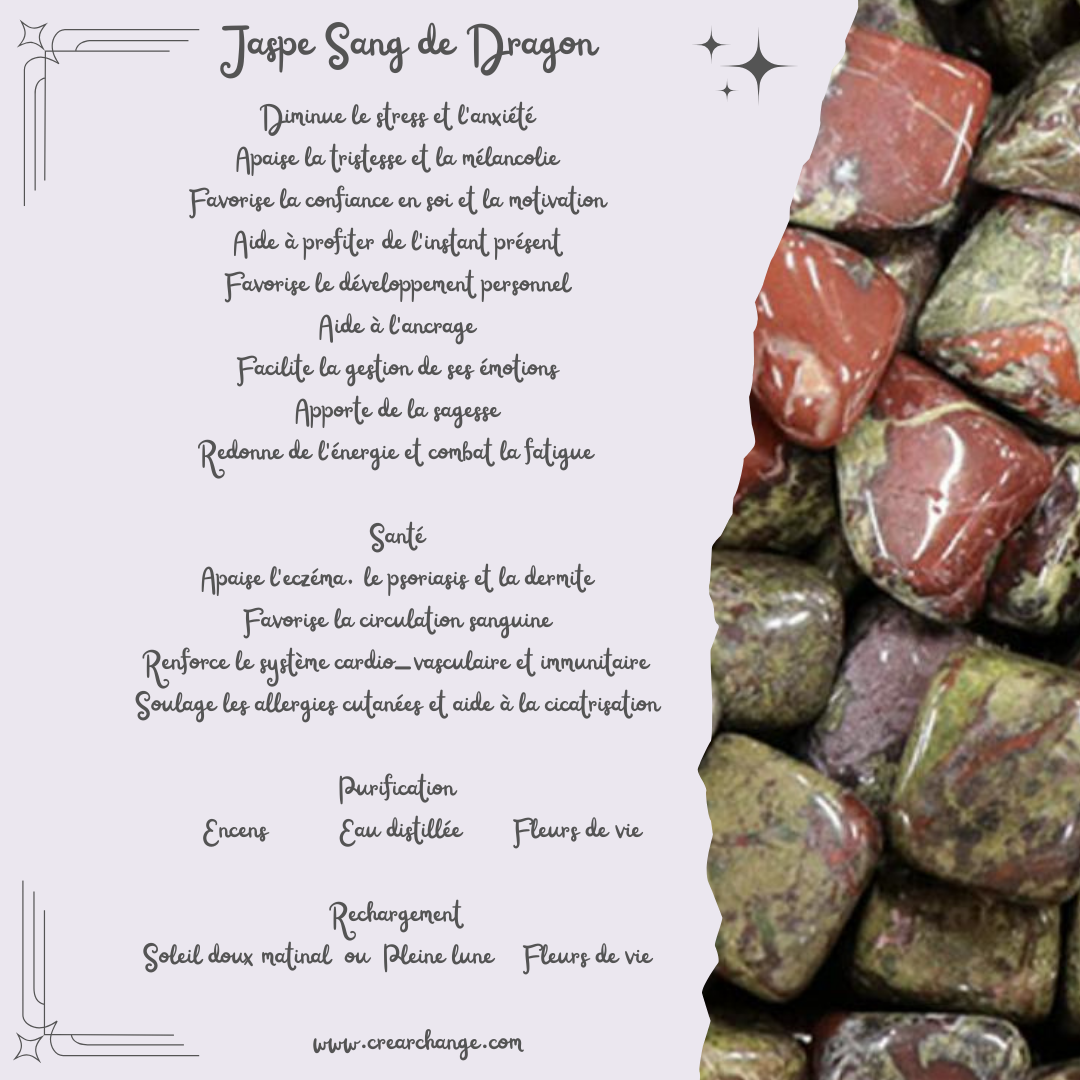 Jaspe Sang de Dragon
Diminue le stress et l'anxiété
Apaise la tristesse et la mélancolie
Favorise la confiance en soi et la motivation
Aide à profiter de l'instant présent
Favorise le développement personnel
Aide à l'ancrage
Facilite la gestion de ses émotions
Apporte de la sagesse
Redonne de l'énergie et combat la fatigue
Santé
Apaise l'eczéma. le psoriasis et la dermite
Favorise la circulation sanguine
Renforce le système cardio_vasculaire et immunitaire
Soulage les allergies cutanées et aide à la cicatrisation
Purification
Encens Eau distillée Fleurs de vie
Rechargement
Soleil doux matinal ou Pleine lune Fleurs de vie
www.crearchange.com